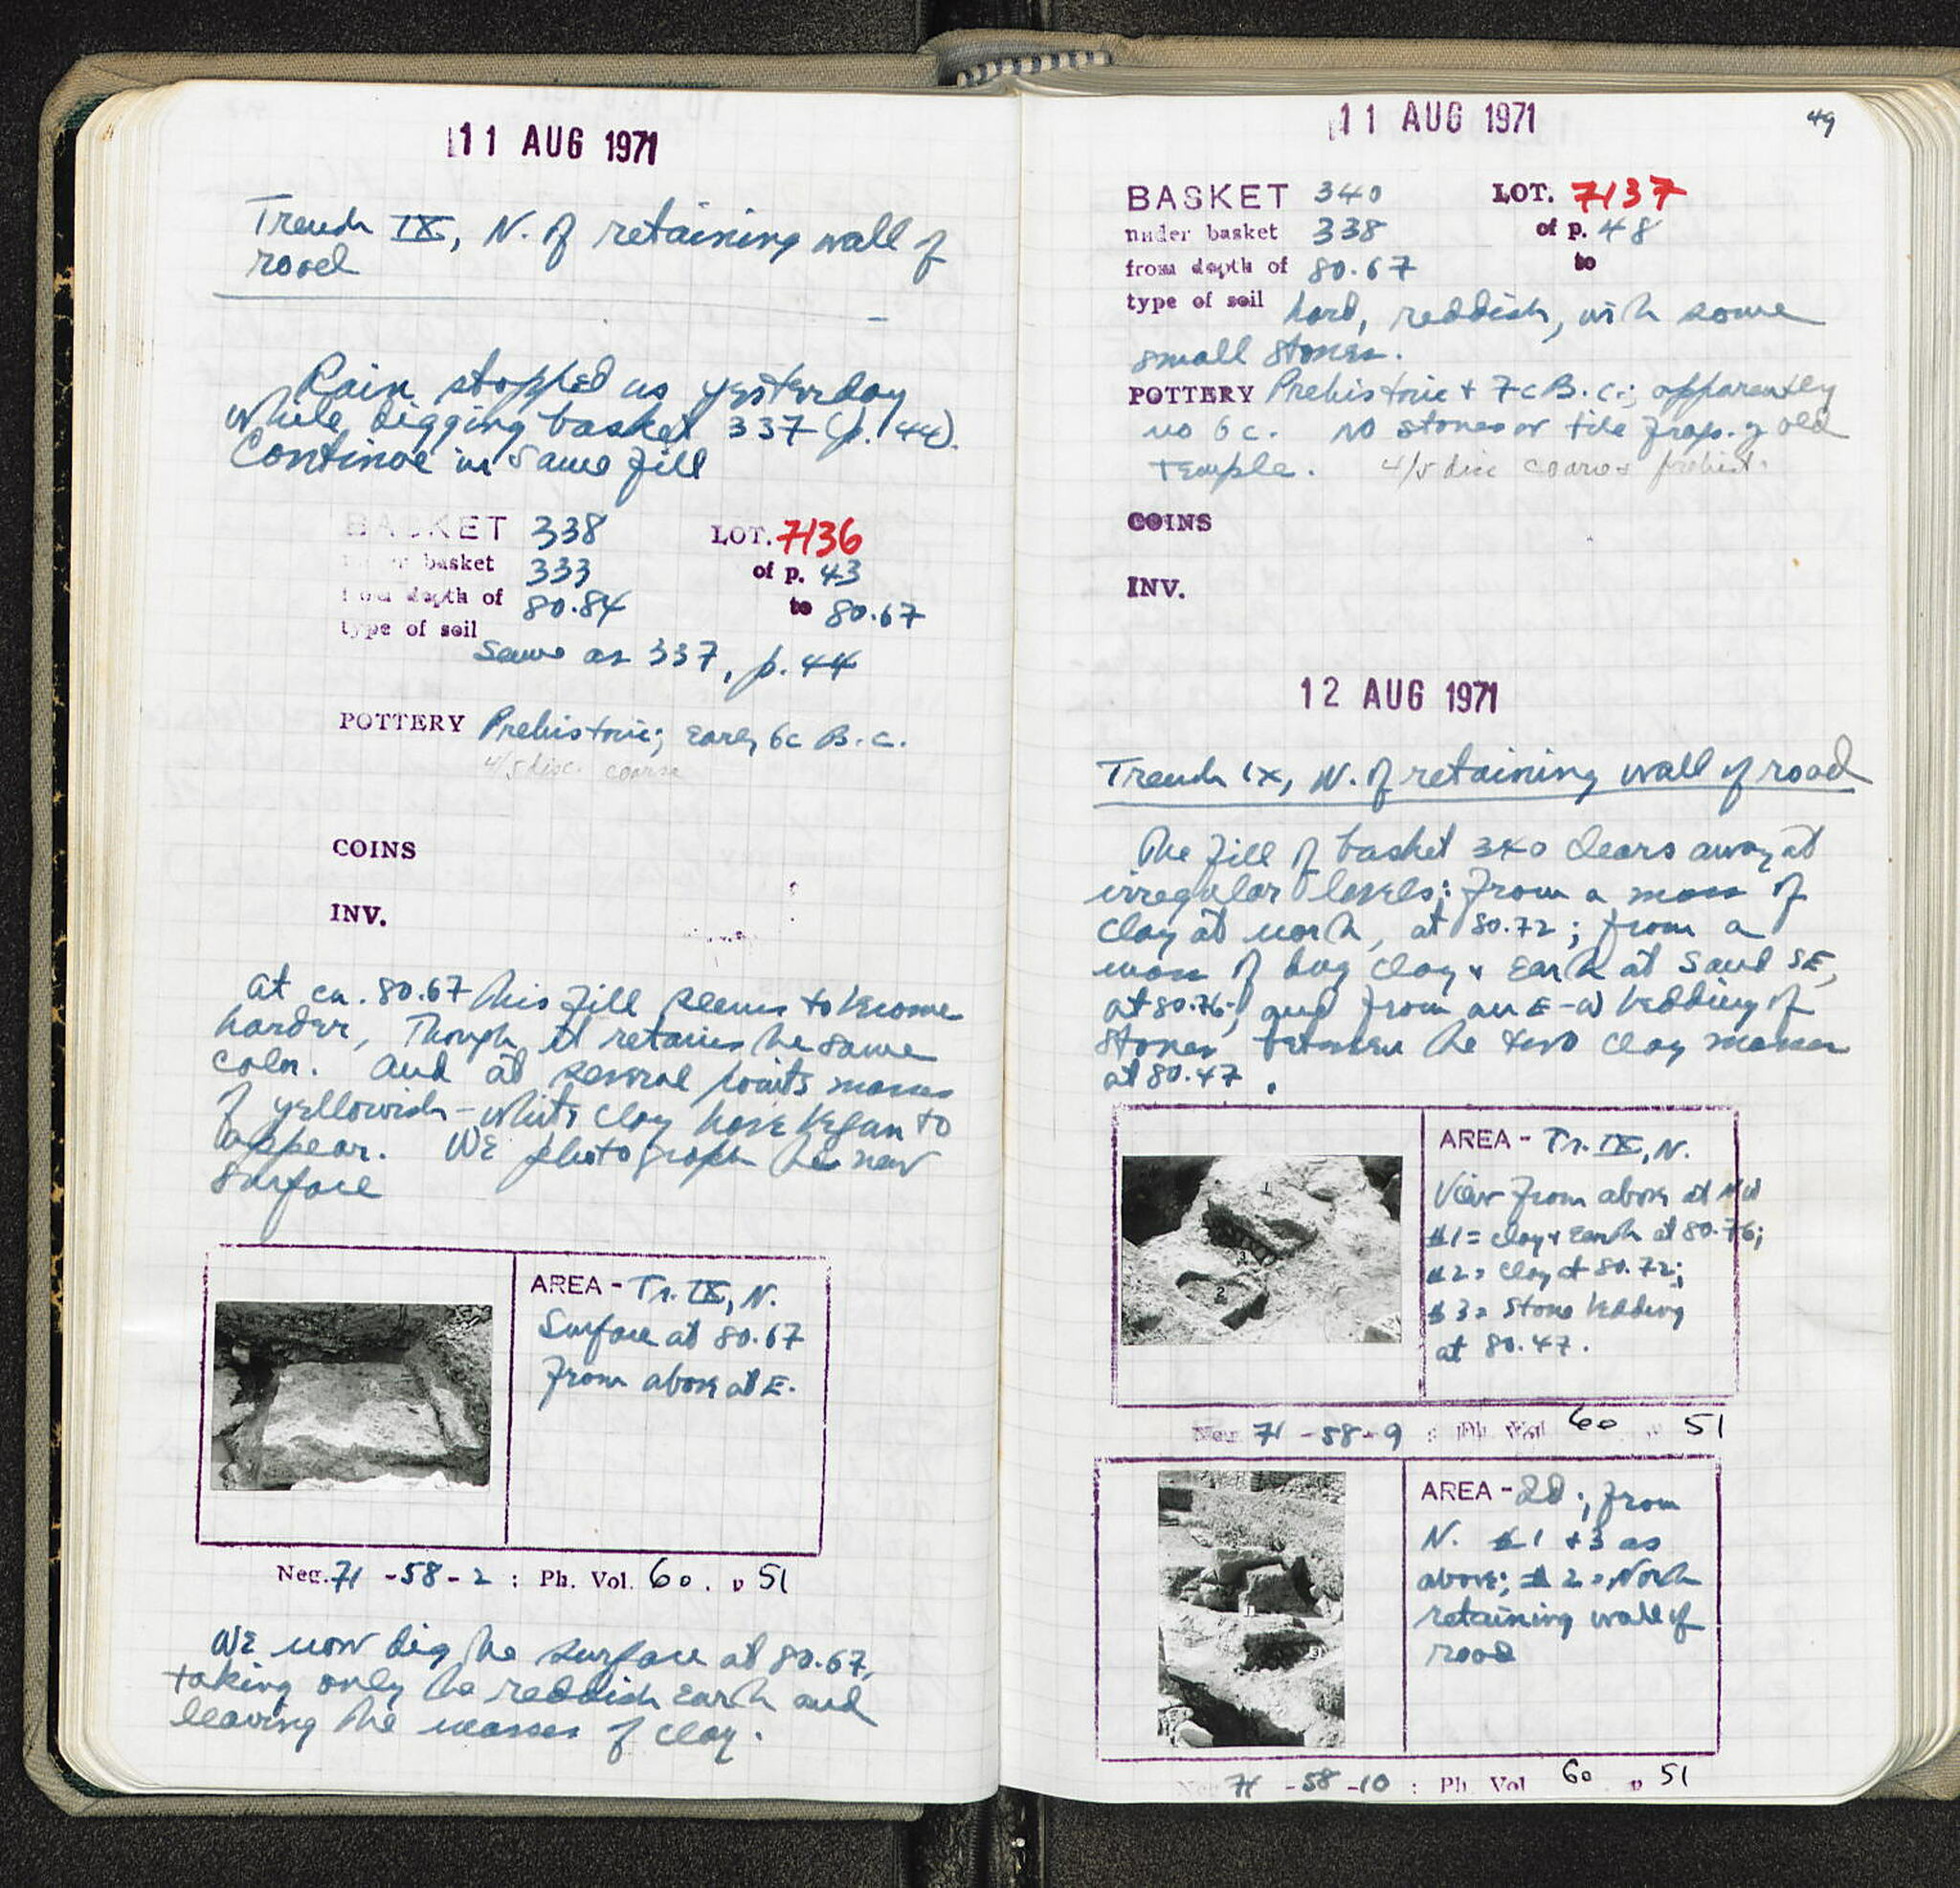 11 AUG 1971
Trench IX, N. of retaining wall of
road
Rain stopped us yesterday
while digging basket 337 (p. 44).
Continue in same fill
BASKET 338 LOT. 7136
under basket 333 of p. 43
from depth of 80.84 to 80.67
type of soil
same as 337, p. 44
POTTERY Prehistoric; early 6c B.C.
4/5 disc. coarse
COINS
INV.
At ca. 80.67 this fill seems to become
harder, though it retains the same
color. And at several points masses
of yellowish-white clay have began to
appear. We photograph the new
surface
AREA - Tr. IX, N.
Surface at 80.67
from above at E.
Neg. 71 -58-2 : Ph. Vol. 60. p 51
We now dig the surface at 80.67,
taking only the reddish earth and
leaving the masses of clay.
11 AUG 1971
49
BASKET 340 LOT. 7137
under basket 338 of p. 48
from depth of 80.67 to
type of soil hard, reddish, with some
small stones.
POTTERY Prehistoric + 7c B.C.; apparently
no 6c. No stones or tile frags. of old
temple. 4/5 disc coarse + prehist.
COINS
INV.
12 AUG 1971
Trench IX, N. of retaining wall of road
The fill of basket 340 clears away at
irregular levels: from a mass of
clay at north, at 80.72; from a
mass of dug clay + earth at SE,
at 80.76; and from an E-W bedding of
stones between the two clay masses
at 80.47.
AREA - Tr. IX, N.
View from above at NW
#1 = clay + earth at 80.76;
#2 = clay at 80.72;
#3 = stone bedding
at 80.47.
Neg. 71 -58-9 : Ph. Vol 60 p 51
AREA - Id.; from
N. #1 + 3 as
above; #2 = North
retaining wall of
road
Neg. 71 -58-10 : Ph. Vol 60 p 51
1
2
3
1
3